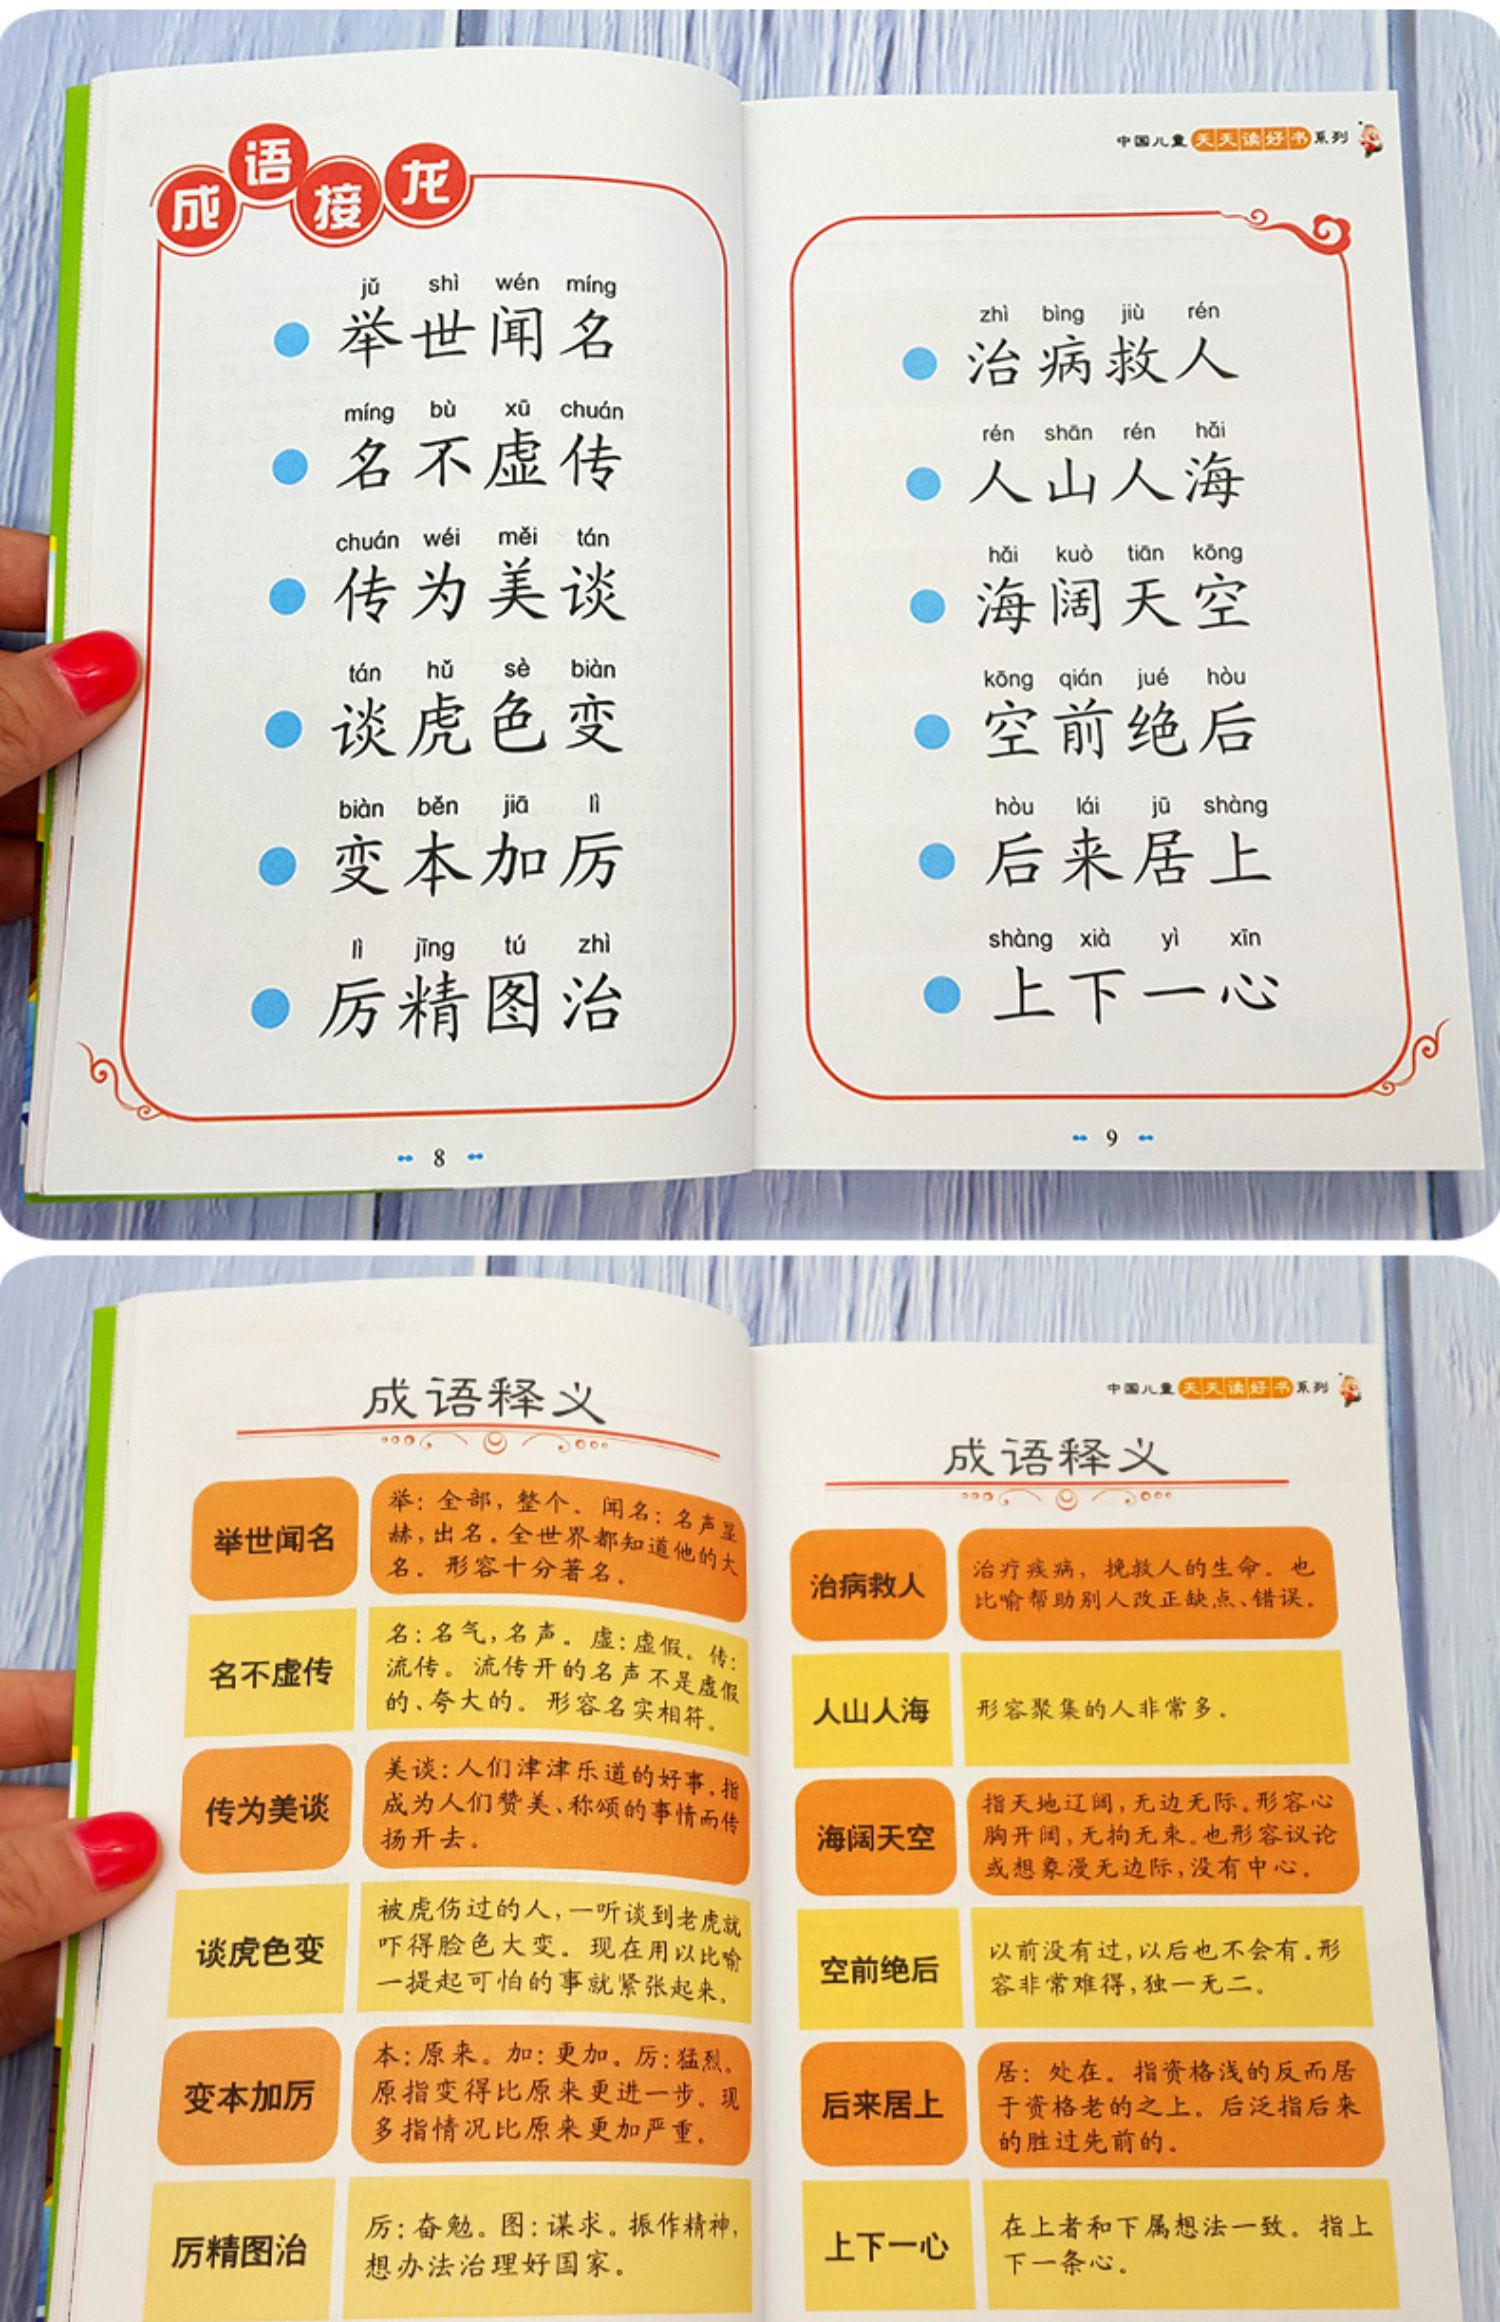 成语接龙
jǔ shì wén míng
举世闻名
míng bù xū chuán
名不虚传
chuán wéi měi tán
传为美谈
tán hǔ sè biàn
谈虎色变
biàn běn jiā lì
变本加厉
lì jīng tú zhì
厉精图治
8
中国儿童天天读好书系列
zhì bìng jiù rén
治病救人
rén shān rén hǎi
人山人海
hǎi kuò tiān kōng
海阔天空
kōng qián jué hòu
空前绝后
hòu lái jū shàng
后来居上
shàng xià yì xīn
上下一心
9
成语释义
举世闻名
举：全部，整个。闻名：名声显
赫，出名。全世界都知道他的大
名。形容十分著名。
名不虚传
名：名气，名声。虚：虚假。传：
流传。流传开的名声不是虚假
的、夸大的。形容名实相符。
传为美谈
美谈：人们津津乐道的好事。指
成为人们赞美、称颂的事情而传
扬开去。
谈虎色变
被虎伤过的人，一听谈到老虎就
吓得脸色大变。现在用以比喻
一提起可怕的事就紧张起来。
变本加厉
本：原来。加：更加。厉：猛烈。
原指变得比原来更进一步。现
多指情况比原来更加严重。
厉精图治
厉：奋勉。图：谋求。振作精神，
想办法治理好国家。
中国儿童天天读好书系列
成语释义
治病救人
治疗疾病，挽救人的生命。也
比喻帮助别人改正缺点、错误。
人山人海
形容聚集的人非常多。
海阔天空
指天地辽阔，无边无际。形容心
胸开阔，无拘无束。也形容议论
或想象漫无边际，没有中心。
空前绝后
以前没有过，以后也不会有。形
容非常难得，独一无二。
后来居上
居：处在。指资格浅的反而居
于资格老的之上。后泛指后来
的胜过先前的。
上下一心
在上者和下属想法一致。指上
下一条心。